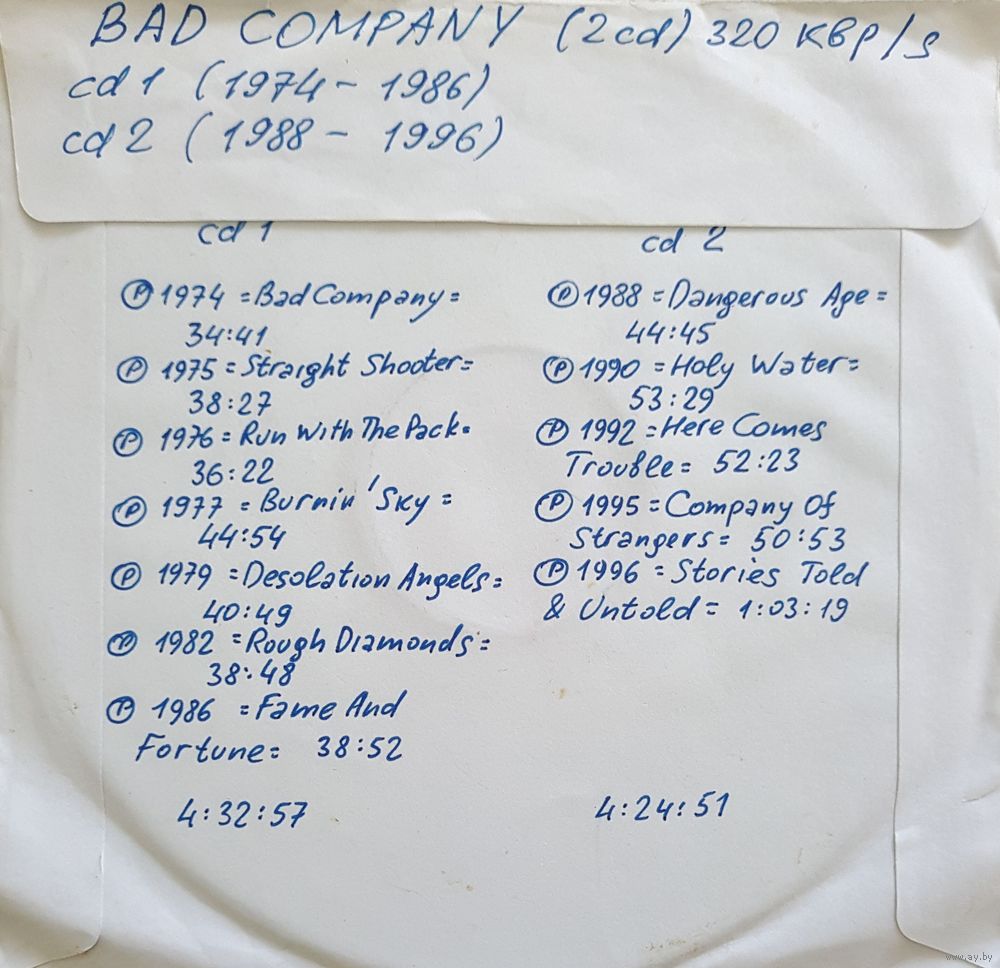 BAD COMPANY (2cd) 320 KBP/S
cd 1 (1974 - 1986)
cd 2 (1988 - 1996)
cd 1
Ⓟ 1974 = Bad Company =
34:41
Ⓟ 1975 = Straight Shooter =
38:27
Ⓟ 1976 = Run With The Pack =
36:22
Ⓟ 1977 = Burnin' Sky =
44:54
Ⓟ 1979 = Desolation Angels =
40:49
Ⓟ 1982 = Rough Diamonds =
38:48
Ⓟ 1986 = Fame And
Fortune = 38:52
4:32:57
cd 2
Ⓟ 1988 = Dangerous Age =
44:45
Ⓟ 1990 = Holy Water =
53:29
Ⓟ 1992 = Here Comes
Trouble = 52:23
Ⓟ 1995 = Company Of
Strangers = 50:53
Ⓟ 1996 = Stories Told
& Untold = 1:03:19
4:24:51
www.ay.by